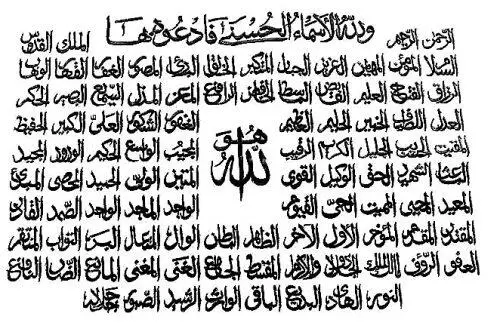 الرحمن الرحيم ولله الأسماء الحسنى فادعوه بها الملك القدوس
السلام المؤمن المهيمن العزيز الجبار المتكبر الخالق البارئ المصور الغفار القهار الوهاب
الرزاق الفتاح العليم القابض الباسط الخافض الرافع المعز المذل السميع البصير الحكم
العدل اللطيف الخبير الحليم العظيم الغفور الشكور العلي الكبير الحفيظ
المقيت الحسيب الجليل الكريم الرقيب هو الله المجيب الواسع الحكيم الودود المجيد
الباعث الشهيد الحق الوكيل القوي المتين الولي الحميد المحصي المبدئ
المعيد المحيي المميت الحي القيوم الواجد الماجد الواحد الصمد القادر
المقتدر المقدم المؤخر الأول الآخر الظاهر الباطن الوالي المتعال البر التواب المنتقم
العفو الرؤف مالك الملك ذو الجلال والإكرام المقسط الجامع الغني المغني المانع الضار النافع
النور الهادي البديع الباقي الوارث الرشيد الصبور جل جلاله